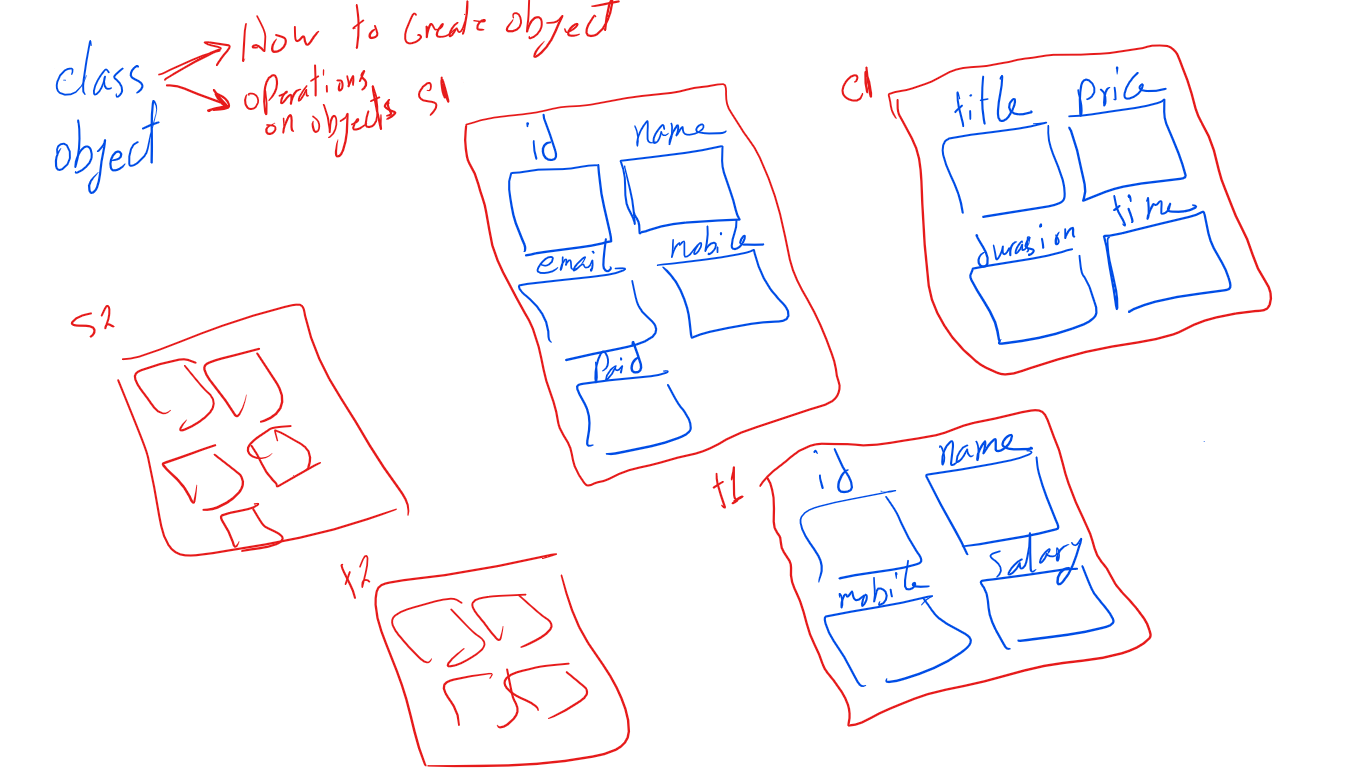 class
object
How to Create object
operations
on objects
S1
id name
email mobile
Paid
C1
title price
durasion time
S2
t1
id name
mobile salary
t2